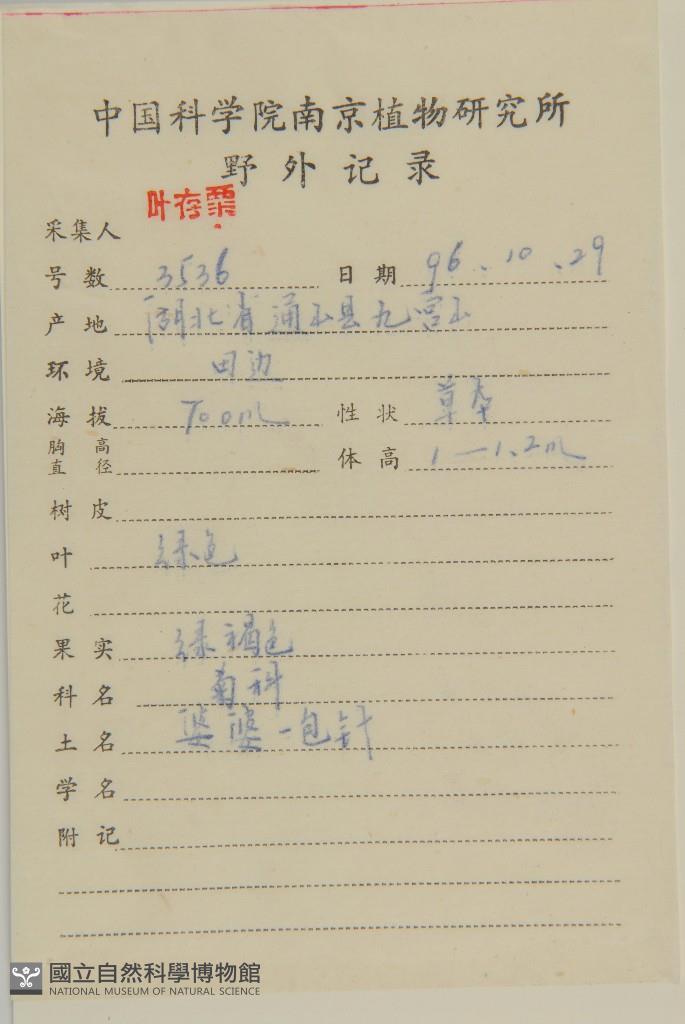 中国科学院南京植物研究所
野外记录
采集人 叶存粟
号数 3536 日期 96.10.29
产地 湖北省通山县九宫山
环境 田边
海拔 700m 性状 草本
胸高直径 体高 1—1.2m
树皮
叶 绿色
花
果实 绿褐色
科名 菊科
土名 婆婆一包针
学名
附记
國立自然科學博物館
NATIONAL MUSEUM OF NATURAL SCIENCE